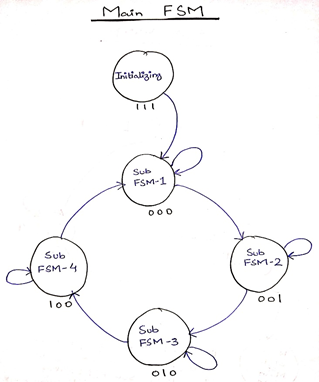 Main FSM
Initializing
111
Sub
FSM-1
000
Sub
FSM-4
100
Sub
FSM-2
001
Sub
FSM-3
010